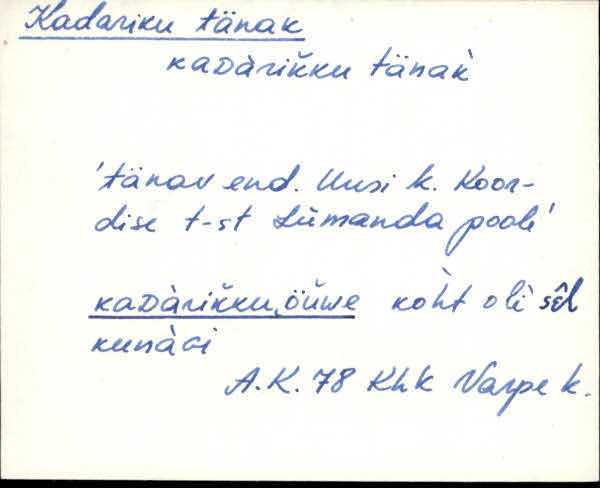 Kadariku tänak
kaᴅàriǩku tänak̀
'tänav end. Uusi k. Koor-
dise t-st Lümanda poole'
kaᴅàriǩku öǔwe kòht oli sêl
kunàɢi
A.K. 78 Khk Varpe k.